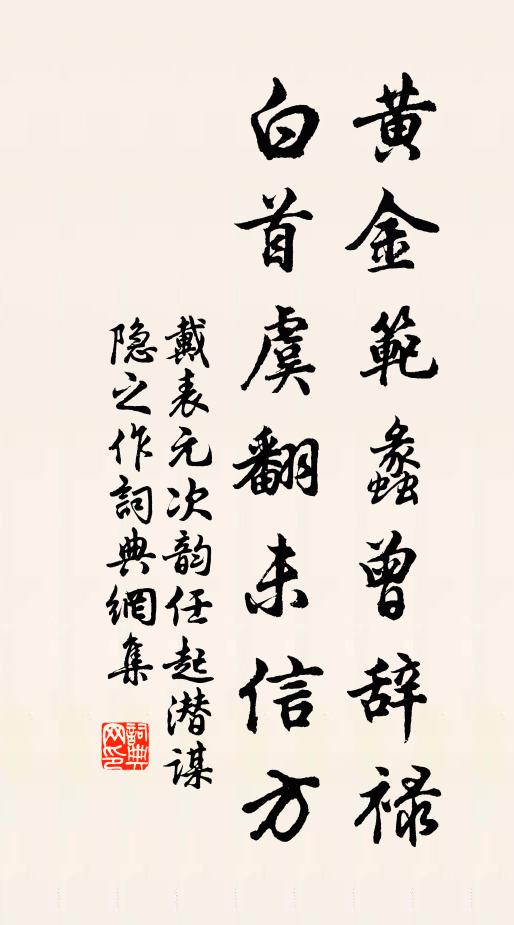 黄金範蠡曾辞禄
白首虞翻未信方
戴表元次韵任起潜谋
隐之作詞典網集
詞典网印